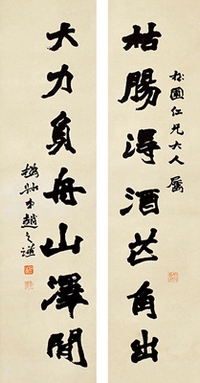 枯腸得酒芒角出
松園仁兄大人屬
大力負舟山澤開
趙之謙